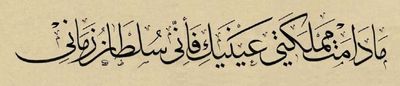 مَا دَامَتْ مَمْلَكَتِي عَيْنَيْكِ فَأَنِّي سُلْطَانُ زَمَانِي